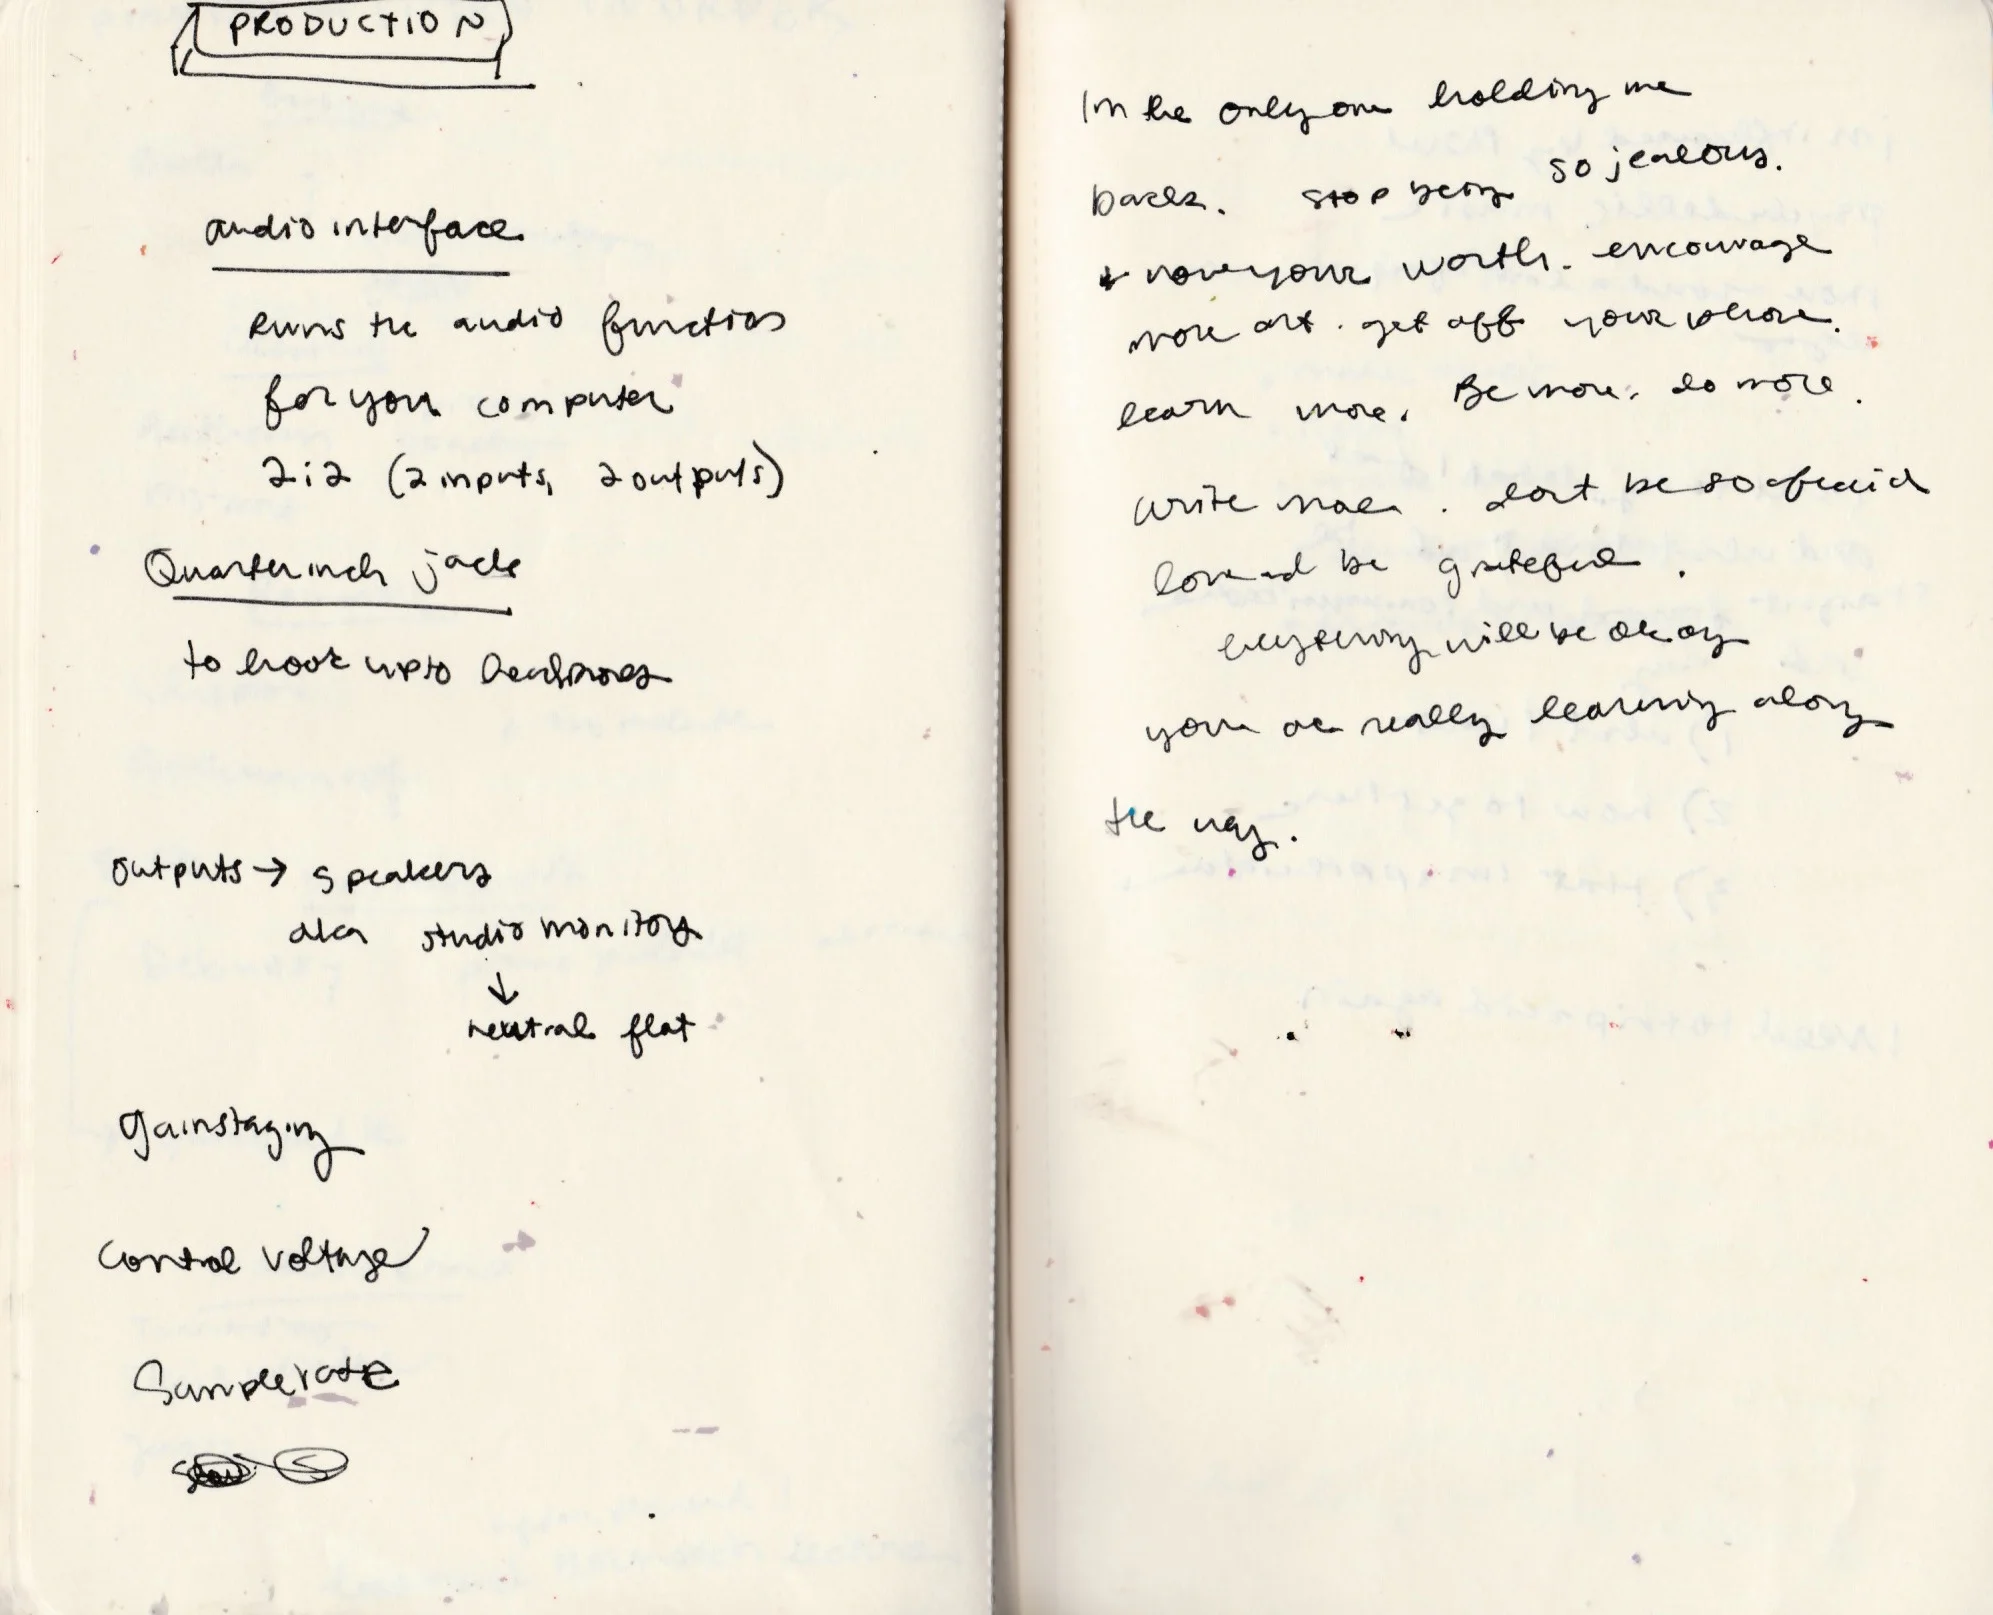 PRODUCTION
audio interface
Runs the audio functions
for your computer
2i2 (2 inputs, 2 outputs)
Quarter inch jack
to hook up to headphones
outputs → speakers
aka studio monitors
↓
neutral flat
gainstaging
control voltage
Sample rate
Im the only one holding me
back. stop being so jealous.
+ your worth. encourage
more art. get off your phone.
learn more. Be more. do more.
write more. dont be so afraid
love and be grateful.
everything will be okay
your are really learning along
the way.